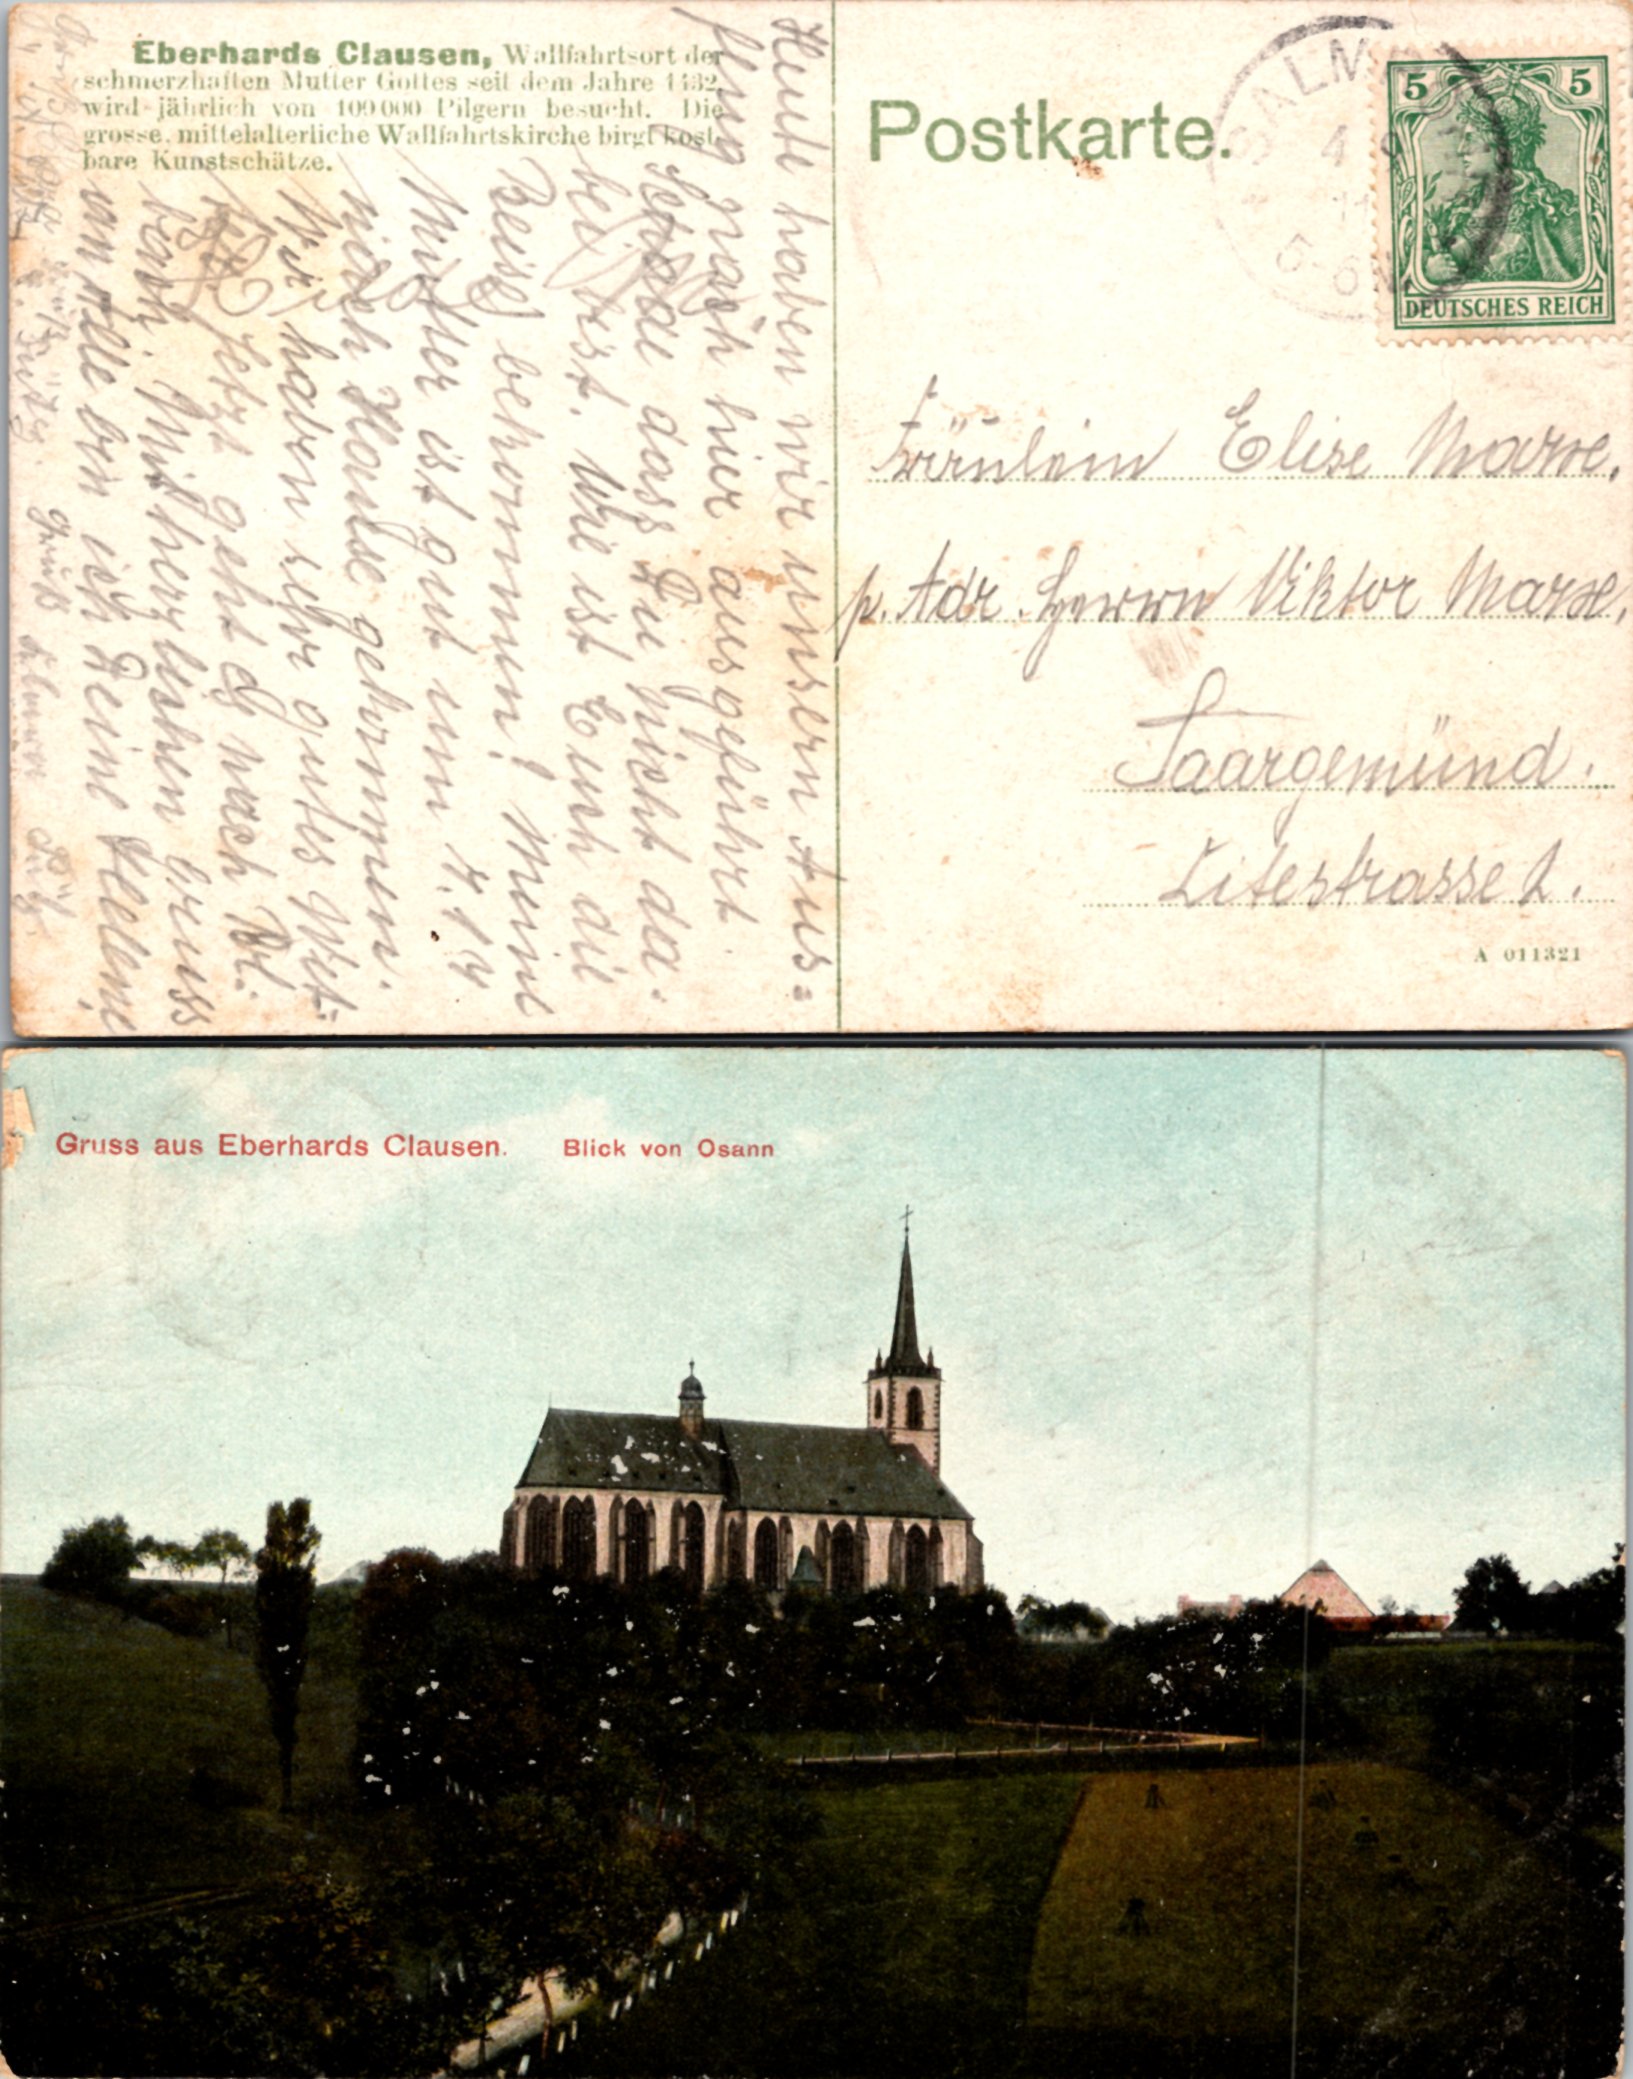 Eberhards Clausen, Wallfahrtsort der
schmerzhaften Mutter Gottes seit dem Jahre 1432,
wird jährlich von 100 000 Pilgern besucht. Die
grosse, mittelalterliche Wallfahrtskirche birgt kost-
bare Kunstschätze.
Heute haben wir unsern Aus=
flug nach hier ausgeführt.
Schade dass Du nicht da-
bei bist. Wie ist Euch die
Reise bekommen? Meine
Mutter ist gut um
nach Hause gekommen.
Wir haben sehr gutes Wet-
ter. Jetzt geht es nach
Mit herzlichen Gruss
an Alle bin ich Deine Helene
Postkarte.
SALM
4 9
11
5-6N
5 5
DEUTSCHES REICH
Fräulein Elise Marx,
p. Adr. Herrn Viktor Marx,
Saargemünd.
A 011321
Gruss aus Eberhards Clausen. Blick von Osann